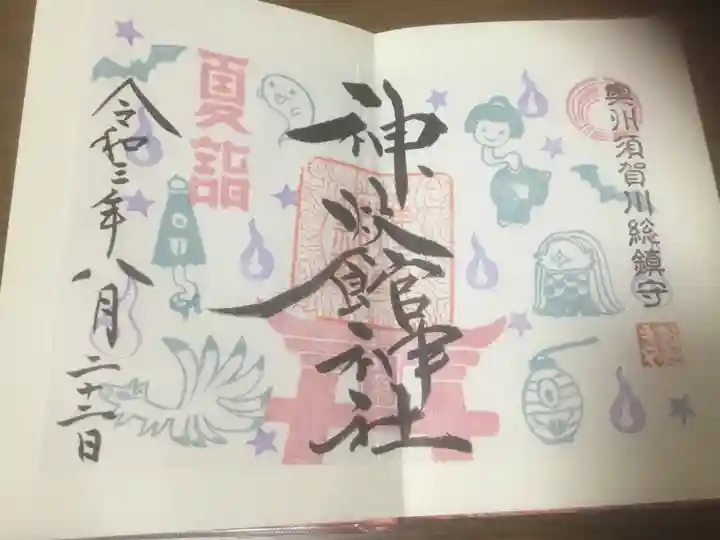 奥州須賀川総鎮守
神炊館神社
夏詣
令和三年八月二十二日